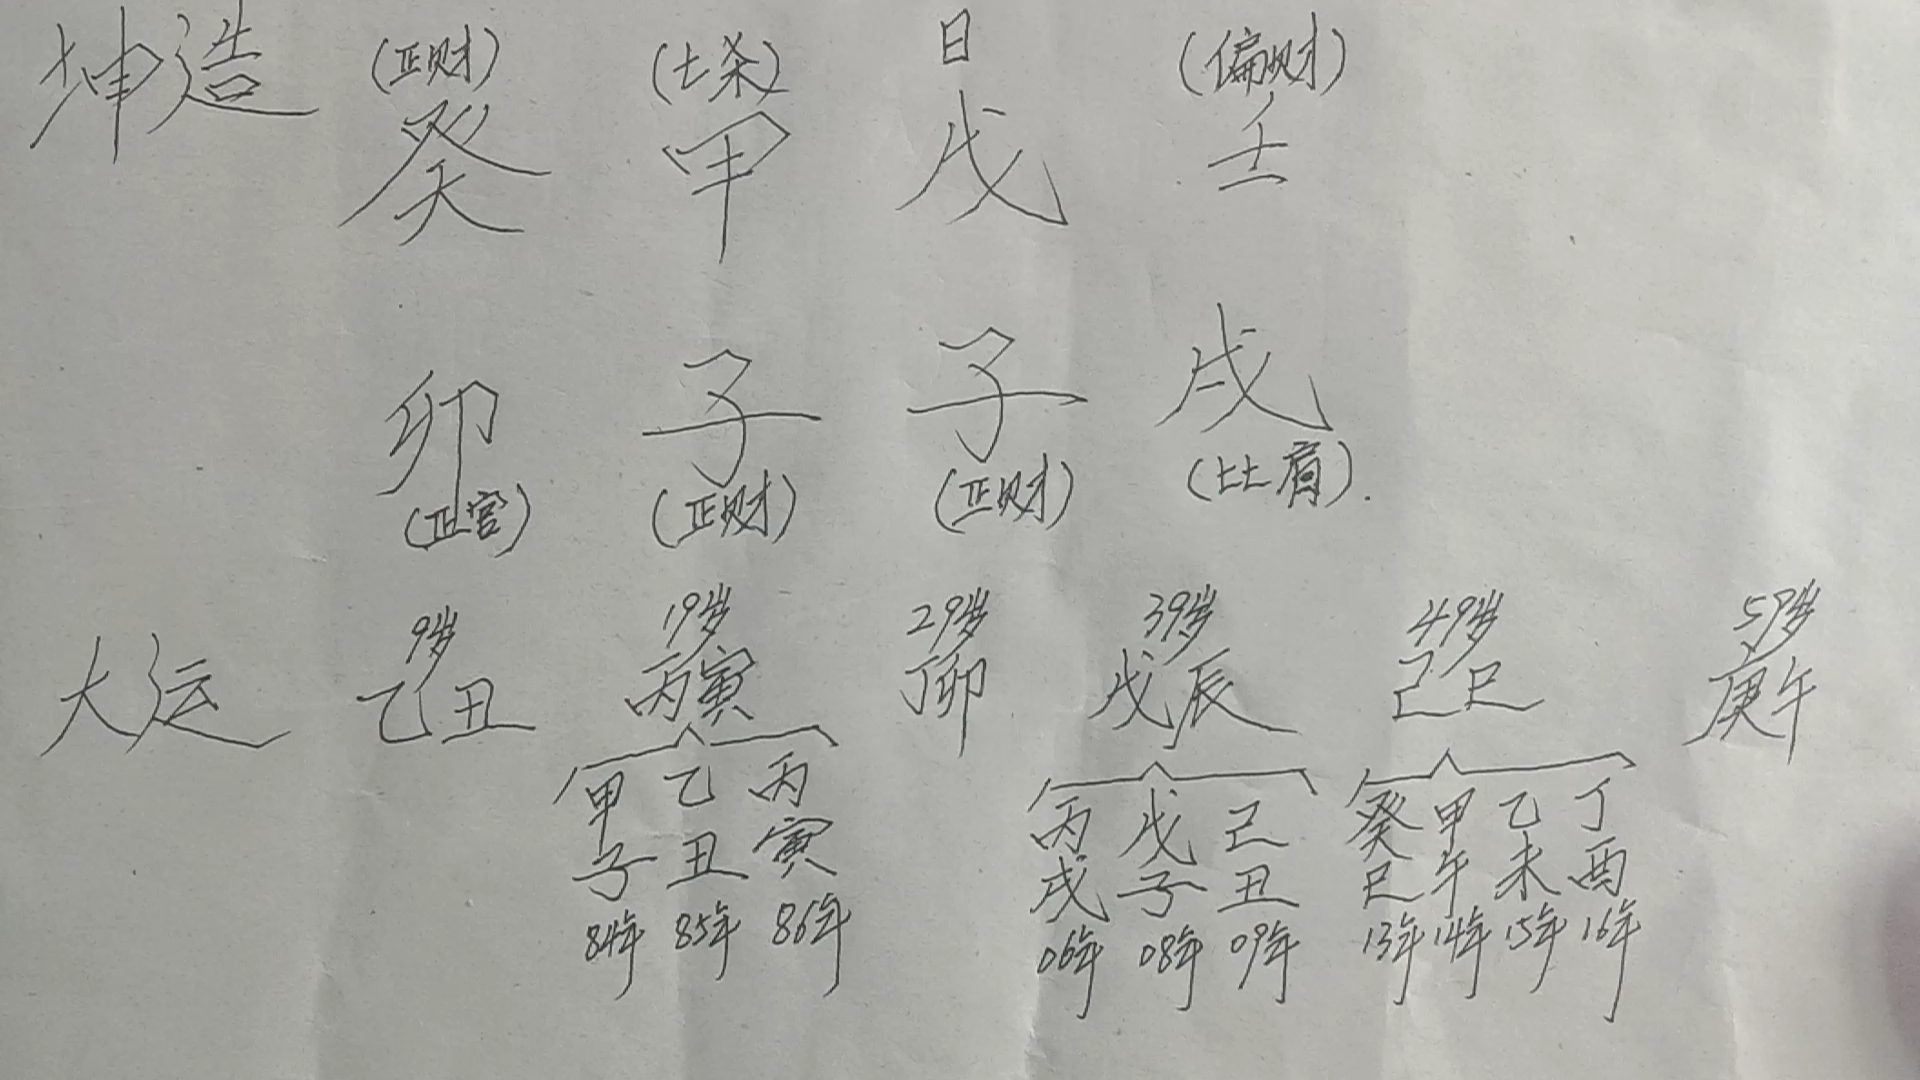 坤造 (正财) (七杀) 日 (偏财)
癸 甲 戊 壬
卯 子 子 戌
(正官) (正财) (正财) (比肩).
9岁 19岁 29岁 39岁 49岁 59岁
大运 乙丑 丙寅 丁卯 戊辰 己巳 庚午
甲 乙 丙 丙 戊 己 癸 甲 乙 丁
子 丑 寅 戌 子 丑 巳 午 未 酉
84年 85年 86年 06年 08年 09年 13年 14年 15年 16年